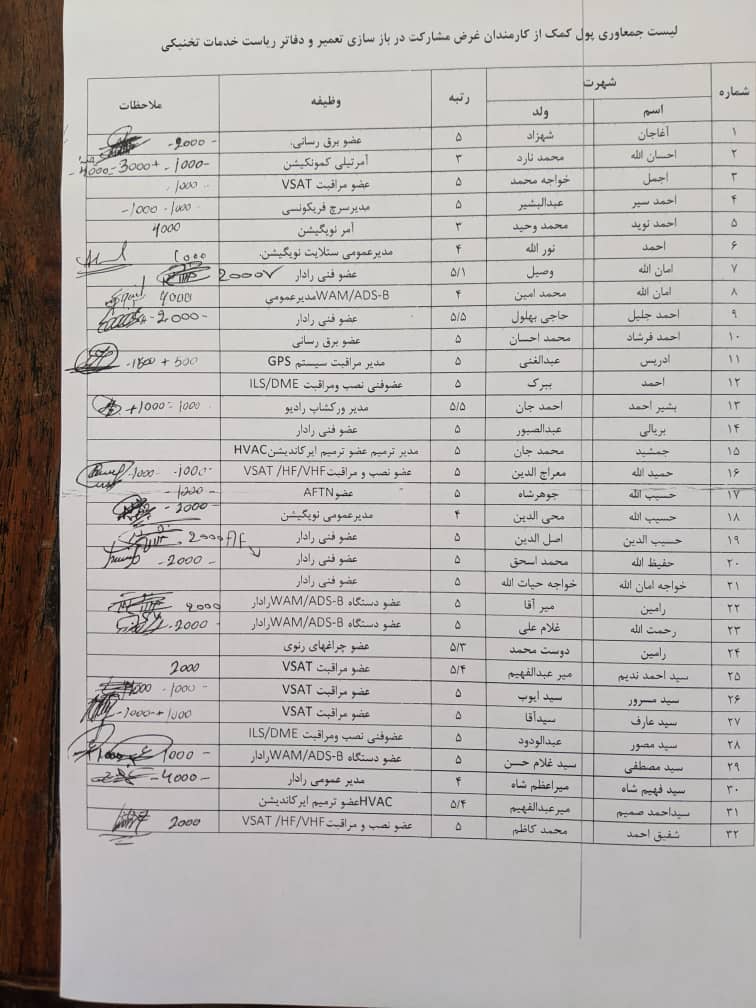 لیست جمعاوری پول کمک از کارمندان غرض مشارکت در باز سازی تعمیر و دفاتر ریاست خدمات تخنیکی
شماره شهرت رتبه وظیفه ملاحظات
اسم ولد
۱ آغاجان شهزاد ۵ عضو برق رسانی. 2000
۲ احسان الله محمد نارد ۳ آمرتیلی کمونکیشن 1000 + 3000 4000
۳ اجمل خواجه محمد ۵ عضو مراقبت VSAT 1000
۴ احمد سیر عبدالبشیر ۵ مدیرسرچ فریکونسی 1000 1000
۵ احمد نوید محمد وحید ۳ آمر نویگیشن 4000
۶ احمد نور الله ۴ مدیرعمومی ستلایت نویگیشن. 1000
۷ امان الله وصیل ۵/۱ عضو فنی رادار 2000
۸ امان الله محمد امین ۴ WAM/ADS-Bمدیرعمومی 4000
۹ احمد جلیل حاجی بهلول ۵/۵ عضو فنی رادار 2000
۱۰ احمد فرشاد محمد احسان ۵ عضو برق رسانی
۱۱ ادریس عبدالغنی ۵ مدیر مراقبت سیستم GPS + 500
۱۲ احمد ببرک ۵ عضوفنی نصب ومراقبت ILS/DME
۱۳ بشیر احمد احمد جان ۵/۵ مدیر ورکشاپ رادیو 1000 +1000
۱۴ بریالی عبدالصبور ۵ عضو فنی رادار
۱۵ جمشید محمد جان ۵ مدیر ترمیم عضو ترمیم ایرکاندیشنHVAC
۱۶ حمید الله معراج الدین ۵ عضو نصب و مراقبتVSAT /HF/VHF 1000 1000
۱۷ حسیب الله جوهرشاه ۵ عضوAFTN
۱۸ حسیب الله محی الدین ۴ مدیرعمومی نویگیشن 2000
۱۹ حسیب الدین اصل الدین ۵ عضو فنی رادار 2000
۲۰ حفیظ الله محمد اسحق ۵ عضو فنی رادار 2000
۲۱ خواجه امان الله خواجه حیات الله ۵ عضو فنی رادار
۲۲ رامین میر آقا ۵ عضو دستگاه WAM/ADS-Bرادار
۲۳ رحمت الله غلام علی ۵ عضو دستگاه WAM/ADS-Bرادار 2000
۲۴ رامین دوست محمد ۵/۳ عضو چراغهای رنوی
۲۵ سید احمد ندیم میر عبدالفهیم ۵/۴ عضو مراقبت VSAT 2000
۲۶ سید مسرور سید ایوب ۵ عضو مراقبت VSAT 1000
۲۷ سید عارف سیدآقا ۵ عضو مراقبت VSAT 1000+1000
۲۸ سید مصور عبدالودود ۵ عضوفنی نصب ومراقبت ILS/DME
۲۹ سید مصطفی سید غلام حسن ۵ عضو دستگاه WAM/ADS-Bرادار 1000
۳۰ سید فهیم شاه میراعظم شاه ۴ مدیر عمومی رادار 4000
۳۱ سیداحمد صمیم میرعبدالفهیم ۵/۴ HVACعضو ترمیم ایرکاندیشن
۳۲ شفیق احمد محمد کاظم ۵ عضو نصب و مراقبتVSAT /HF/VHF 2000